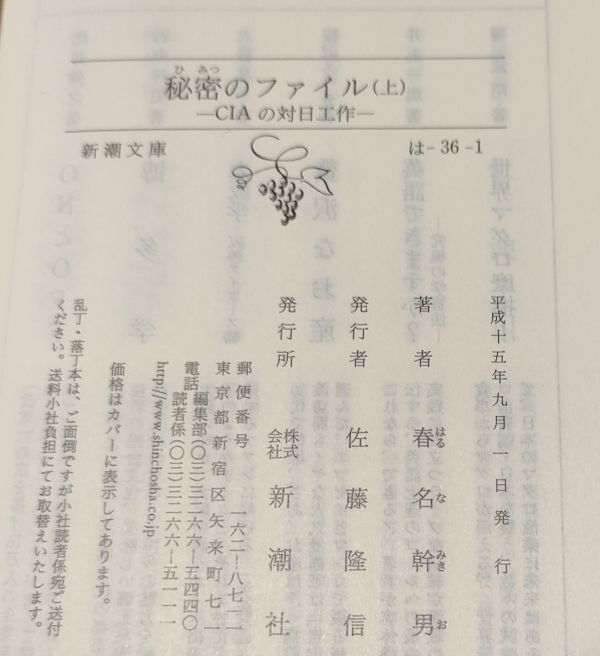 秘密のファイル(上)
―CIAの対日工作―
新潮文庫
は-36-1
平成十五年九月一日発行
著者 春名幹男
発行者 佐藤隆信
発行所 株式会社 新潮社
郵便番号 一六二―八七一一
東京都新宿区矢来町七一
電話 編集部(〇三)三二六六―五四四〇
読者係(〇三)三二六六―五一一一
http://www.shinchosha.co.jp
価格はカバーに表示してあります。
乱丁・落丁本は、ご面倒ですが小社読者係宛ご送付
ください。送料小社負担にてお取替えいたします。